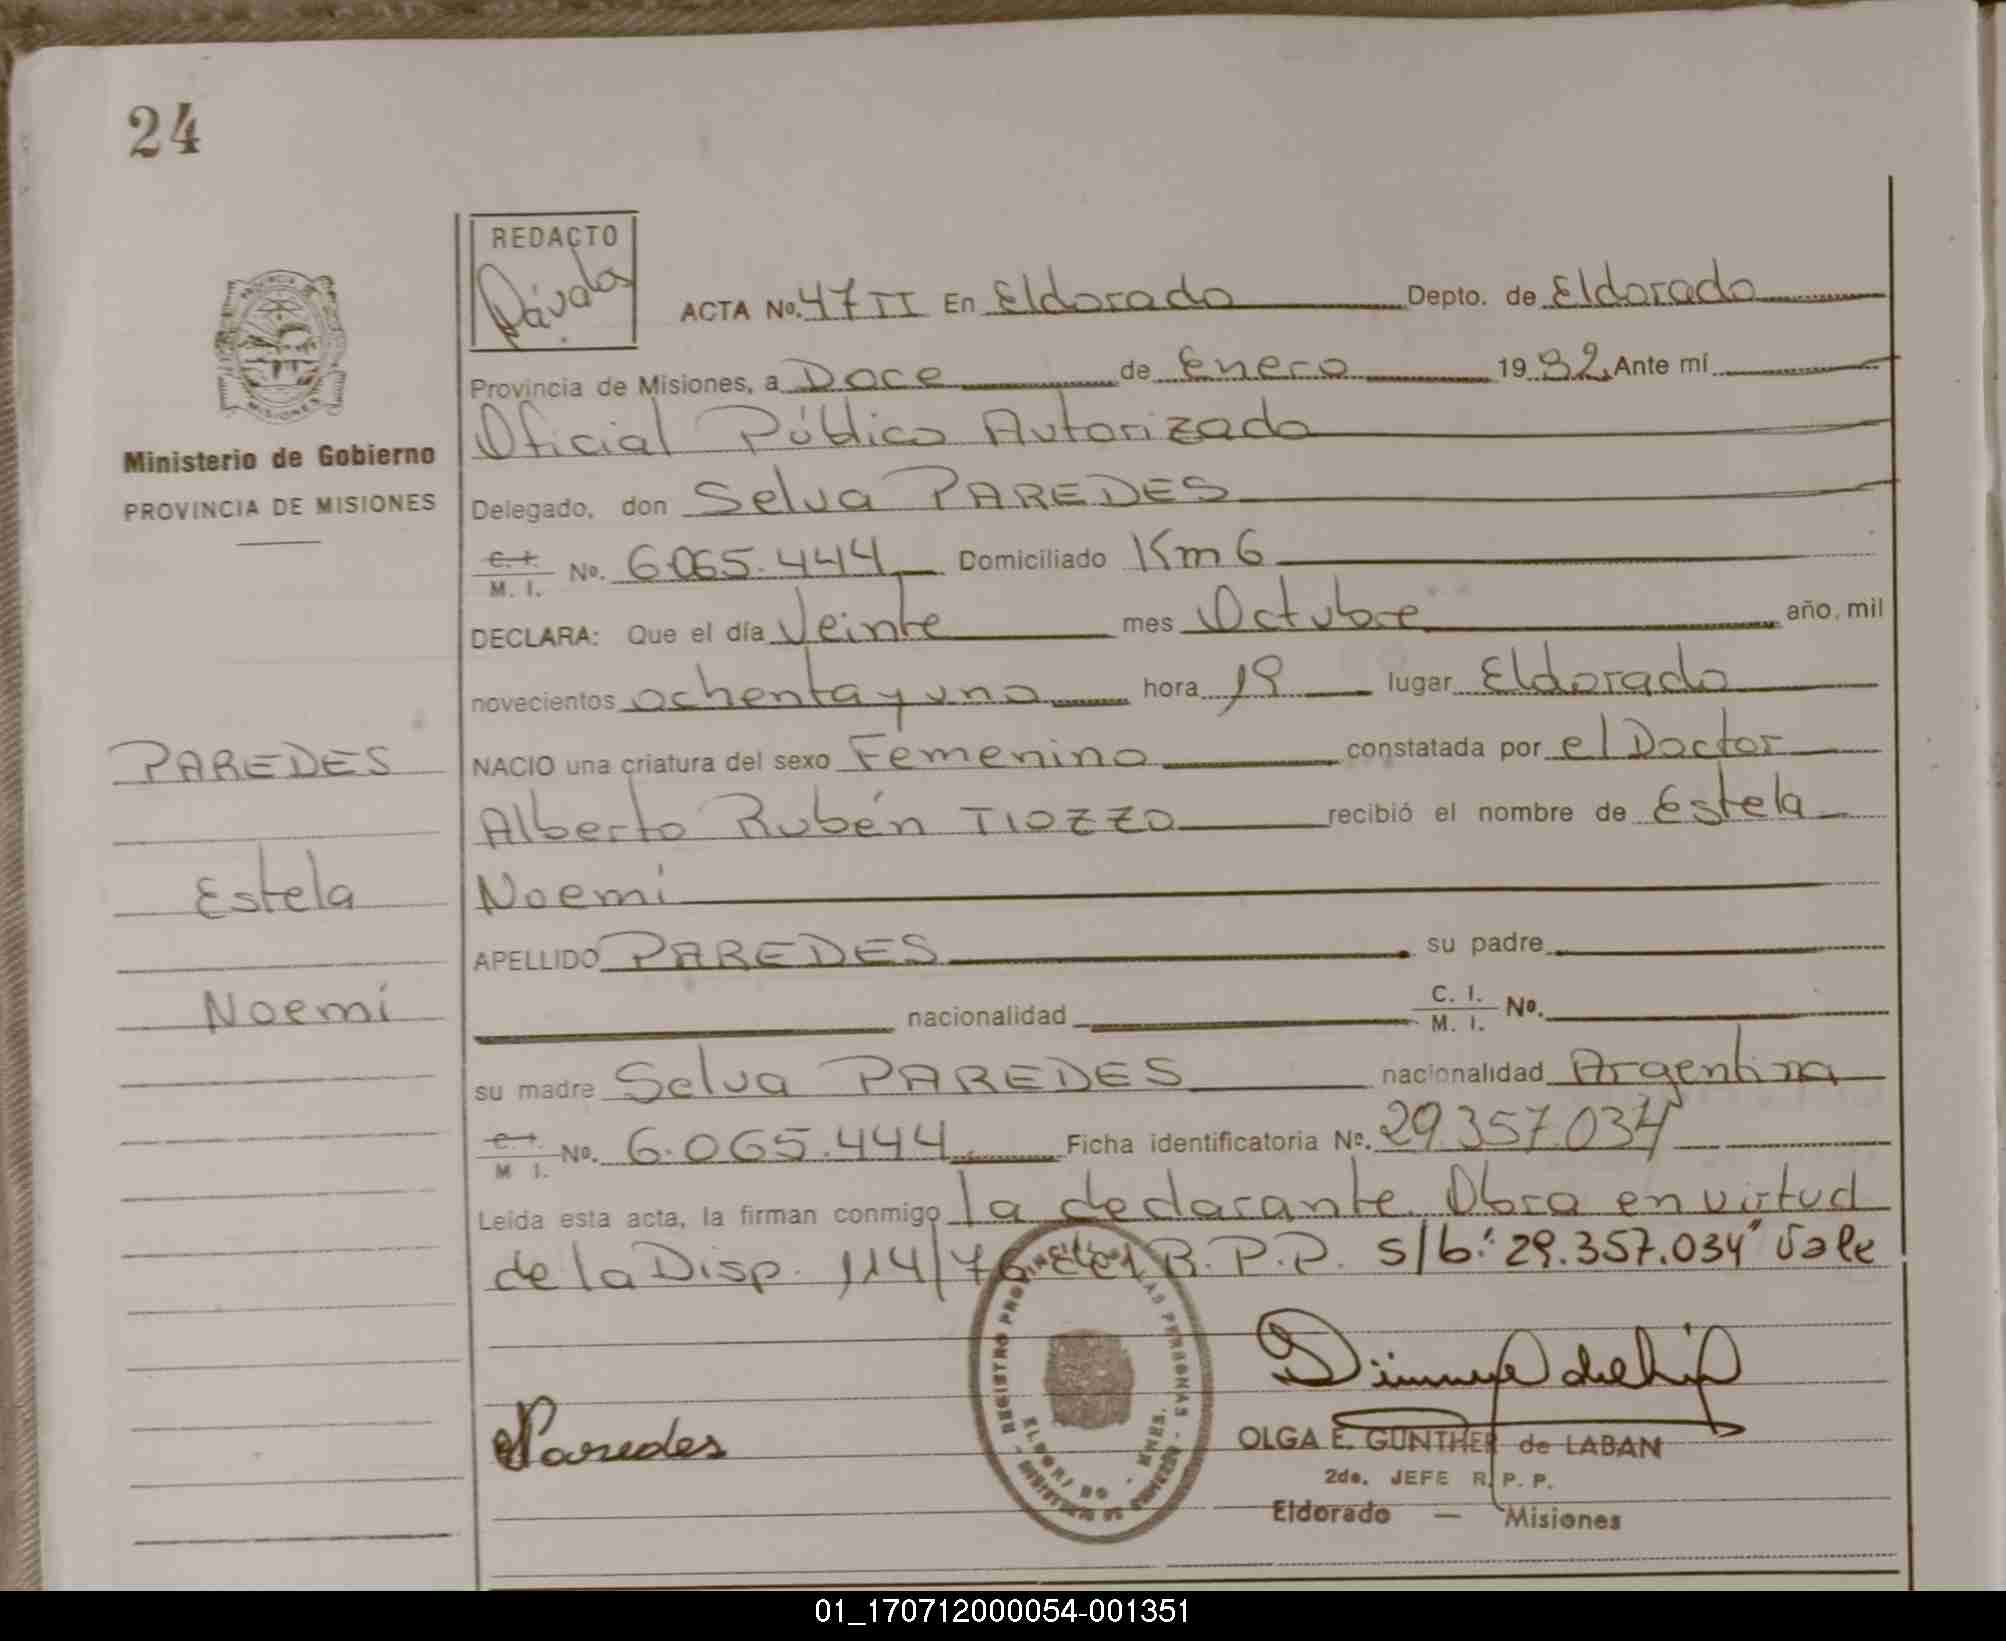 24
REDACTO
Dávalos
ACTA No. 47 II En Eldorado Depto. de Eldorado
Provincia de Misiones, a Doce de Enero 1982 Ante mí
Oficial Público Autorizado
Ministerio de Gobierno
PROVINCIA DE MISIONES
Delegado, don Selva PAREDES
C. I. / M. I. No. 6.065.444 Domiciliado Km 6
DECLARA: Que el día Veinte mes Octubre año, mil
novecientos ochenta y uno hora 19 lugar Eldorado
NACIO una criatura del sexo Femenino constatada por el Doctor
PAREDES
Alberto Rubén TIOZZO recibió el nombre de Estela
Estela
Noemí
APELLIDO PAREDES su padre
Noemí
nacionalidad C. I. / M. I. No.
su madre Selva PAREDES nacionalidad Argentina
C. I. / M. I. No. 6.065.444 Ficha identificatoria No. 29.357.034
Leida esta acta, la firman conmigo la declarante. Obra en virtud
de la Disp. 114/76 del R.P.P. s/b: "29.357.034" Vale
REGISTRO PROVINCIAL DE LAS PERSONAS
ELDORADO - MNES.
Paredes
OLGA E. GUNTHER de LABAN
2do. JEFE R. P. P.
Eldorado — Misiones
01_170712000054-001351